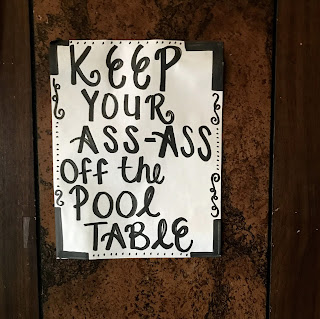 KEEP
YOUR
ASS-ASS
Off the
POOl
TABLE